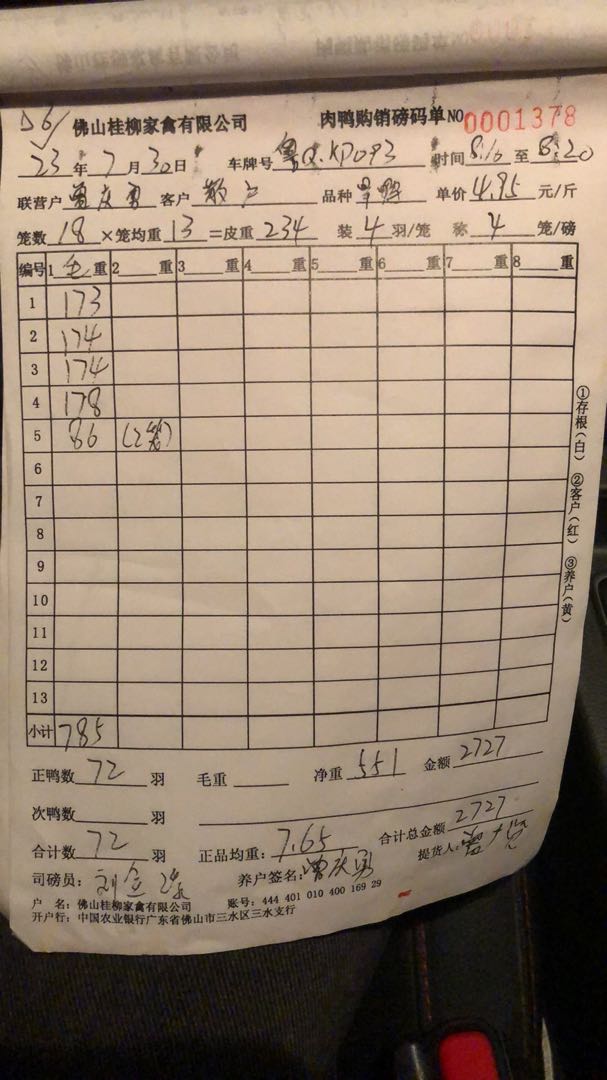 佛山桂柳家禽有限公司 肉鸭购销磅码单 NO 0001378
23年7月30日 车牌号 粤Q.KP093 时间 8:16 至 8:20
联营户 曾庆勇 客户 散户 品种 单价 4.95 元/斤
笼数 18 ×笼均重 13 =皮重 234 装 4 羽/笼 称 4 笼/磅
编号 1 毛 重 2 重 3 重 4 重 5 重 6 重 7 重 8 重
1 173
2 174
3 174
4 178
5 86 (2笼)
6
7
8
9
10
11
12
13
小计 785
正鸭数 72 羽 毛重 净重 551 金额 2727
次鸭数 羽
合计数 72 羽 正品均重: 7.65 合计总金额 2727
司磅员: 养户签名: 曾庆勇 提货人:
户 名: 佛山桂柳家禽有限公司 账号: 444 401 010 400 169 29
开户行: 中国农业银行广东省佛山市三水区三水支行
①存根(白) ②客户(红) ③养户(黄)